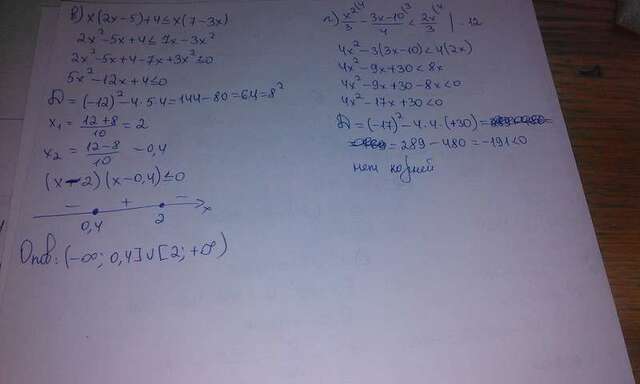 в) x(2x-5)+4≤x(7-3x)
2x²-5x+4≤7x-3x²
2x²-5x+4-7x+3x²≤0
5x²-12x+4≤0
D=(-12)²-4·5·4=144-80=64=8²
x₁=(12+8)/10=2
x₂=(12-8)/10-0,4
(x-2)(x-0,4)≤0
- + - x
0,4 2
Отв: (-∞; 0,4]∪[2; +∞)
г) x²⁽⁴/3 - 3x-10⁽³/4 < 2x⁽⁴/3 | ·12
4x²-3(3x-10)<4(2x)
4x²-9x+30<8x
4x²-9x+30-8x<0
4x²-17x+30<0
D=(-17)²-4·4·(+30)=
=289-480=-191<0
нет корней